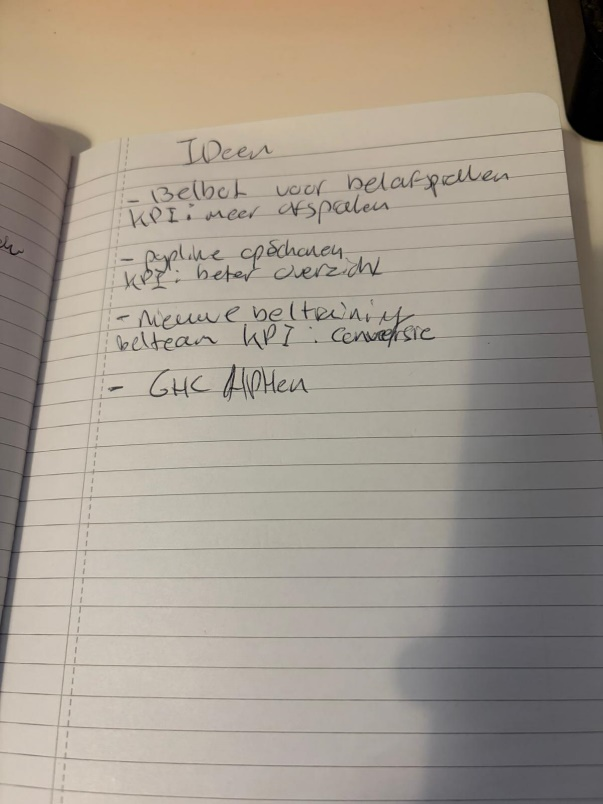 IDeen
- Belbot voor belafspraken
KPI: meer afspraken
- pypline opschonen
KPI: beter overzicht
- Nieuwe beltraining
belteam KPI: conversie
- GHC AlPHen